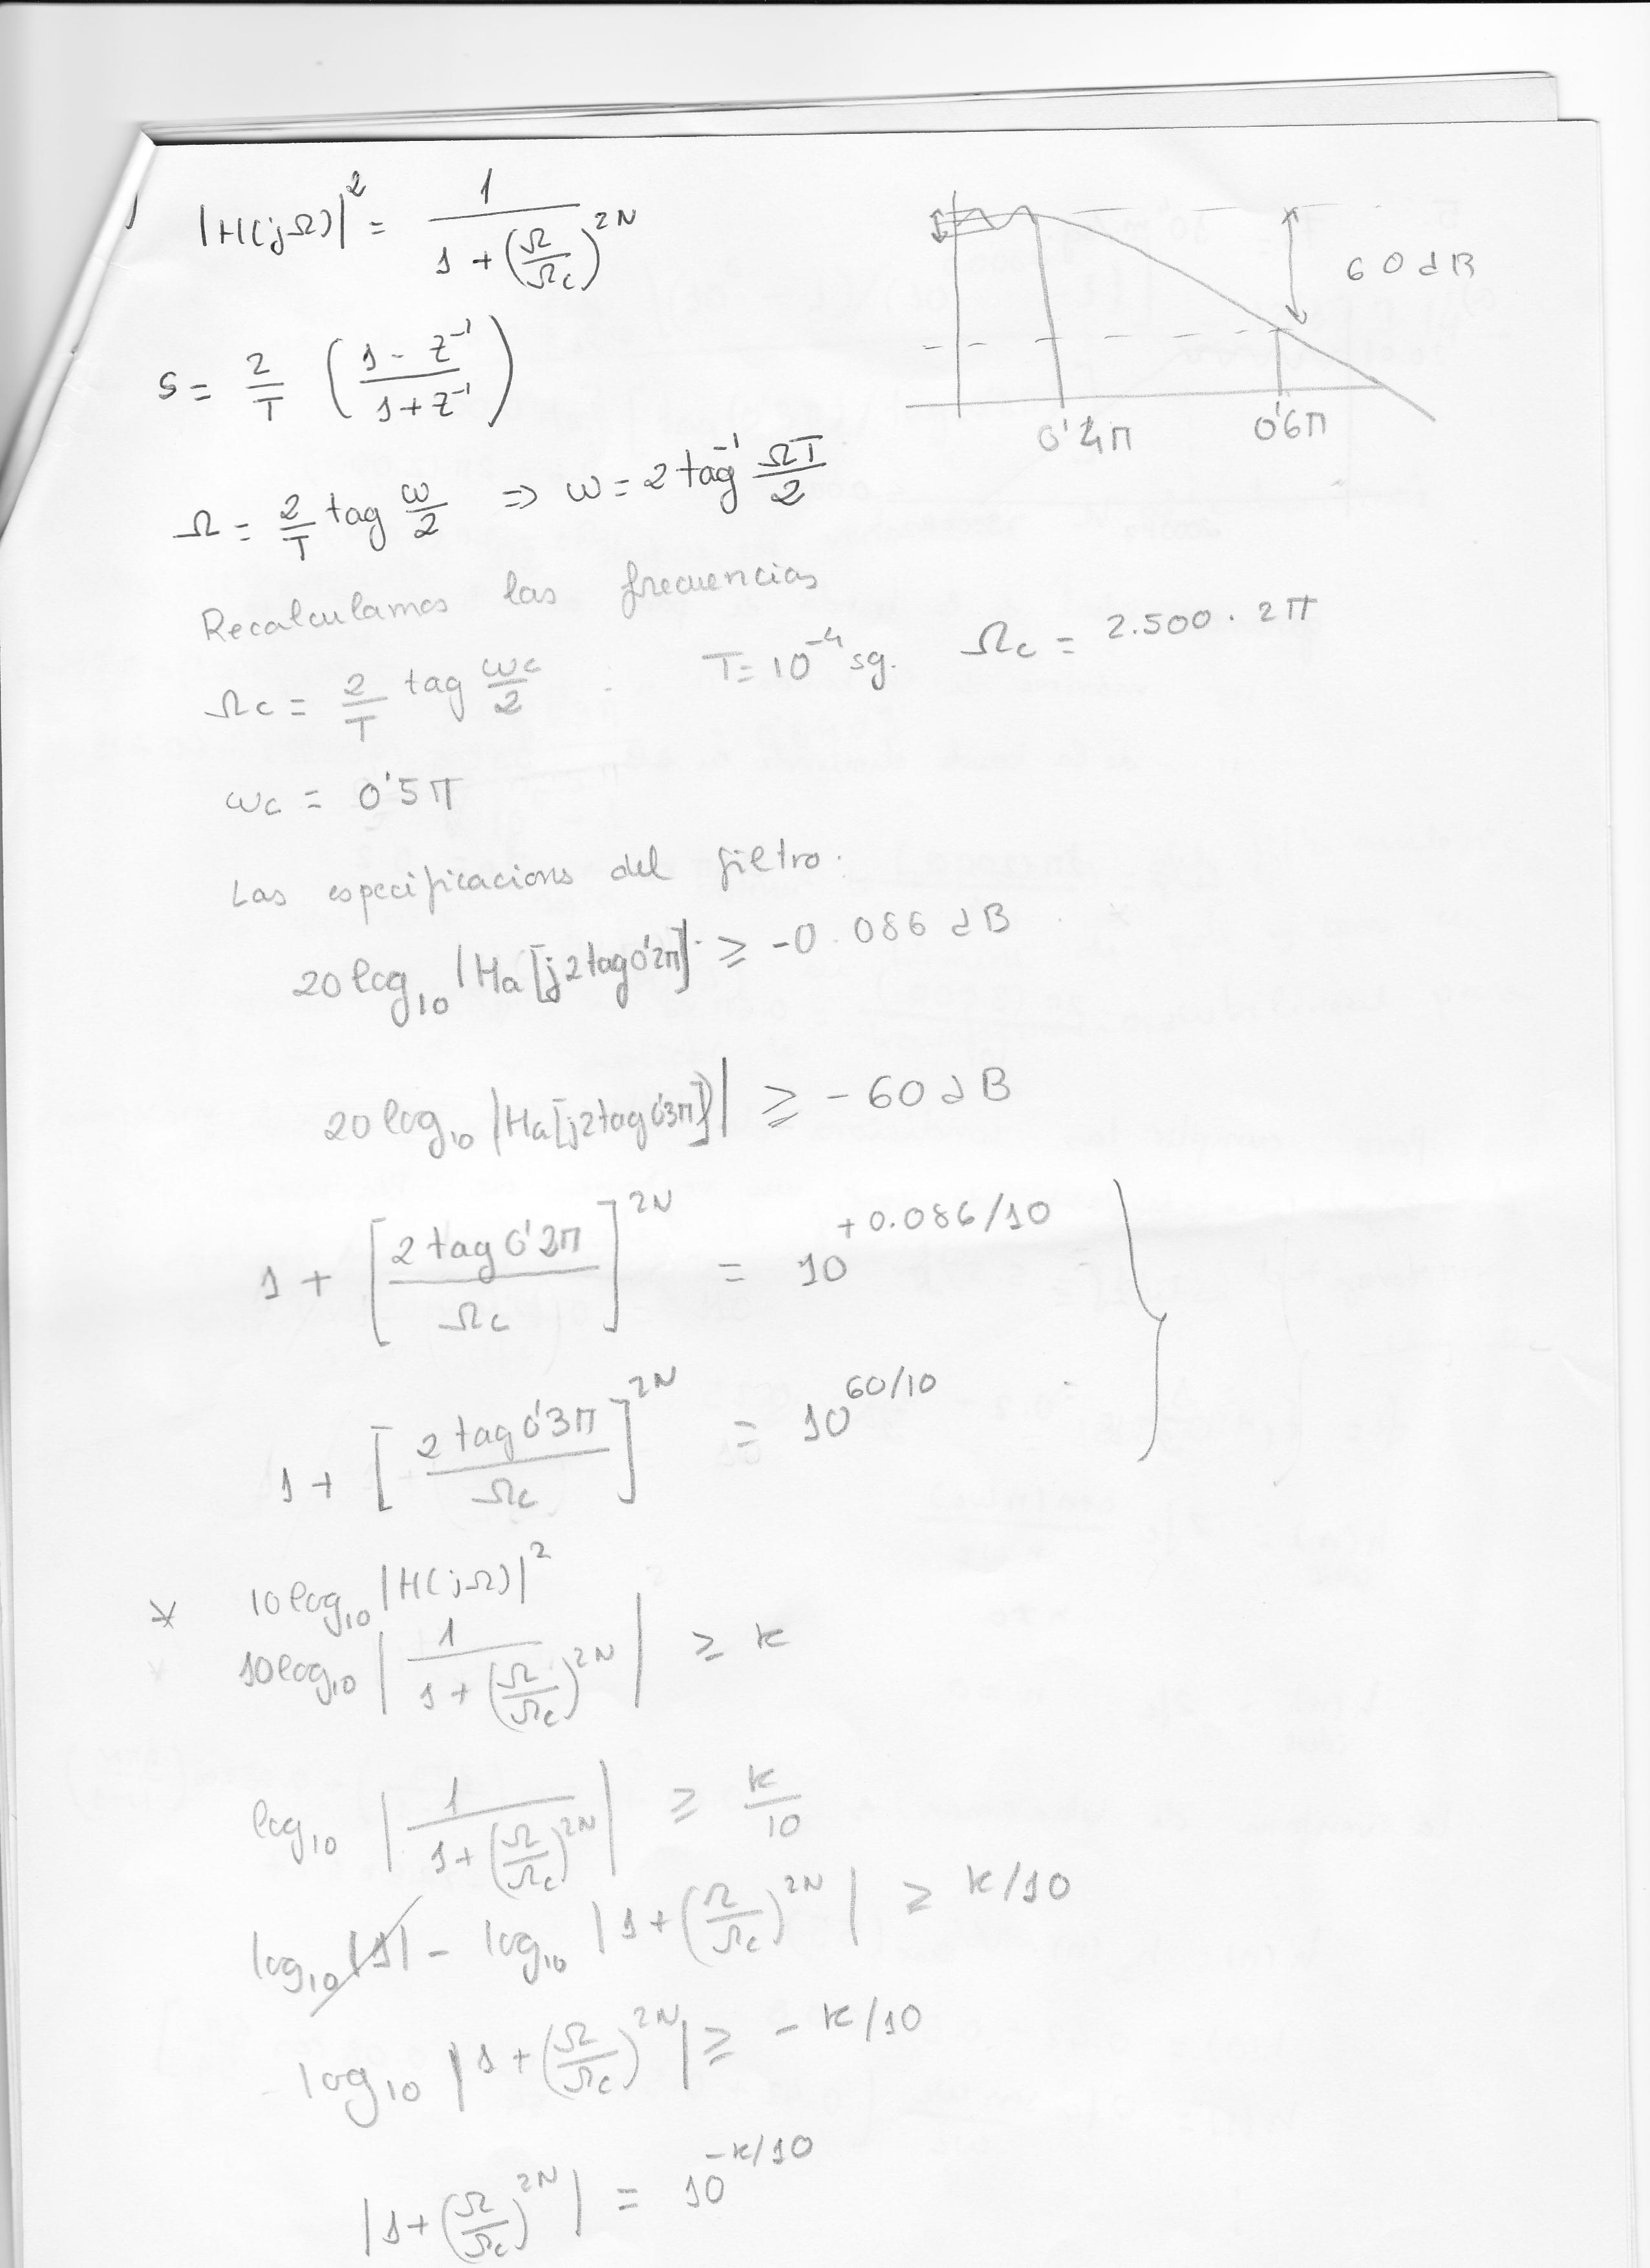 |H(jΩ)|² = 1 / (1 + (Ω/Ωc)^2N)
60 dB
0'4π 0'6π
s = 2/T ((1 - z⁻¹)/(1 + z⁻¹))
Ω = 2/T tag ω/2 => ω = 2 tag⁻¹ ΩT/2
Recalculamos las frecuencias
Ωc = 2/T tag ωc/2 T = 10⁻⁴ sg. Ωc = 2.500 · 2π
ωc = 0'5π
Las especificacions del filtro.
20 log₁₀ |Ha[j2tag0'2π]| ≥ -0.086 dB
20 log₁₀ |Ha[j2tag0'3π]| ≥ -60 dB
1 + [2 tag 0'2π / Ωc]^2N = 10^(+0.086/10)
1 + [2 tag 0'3π / Ωc]^2N = 10^(60/10)
* 10 log₁₀ |H(jΩ)|²
10 log₁₀ | 1 / (1 + (Ω/Ωc)^2N) | ≥ k
log₁₀ | 1 / (1 + (Ω/Ωc)^2N) | ≥ k/10
log₁₀ |1| - log₁₀ |1 + (Ω/Ωc)^2N| ≥ k/10
log₁₀ |1 + (Ω/Ωc)^2N| ≥ -k/10
|1 + (Ω/Ωc)^2N| = 10^(-k/10)